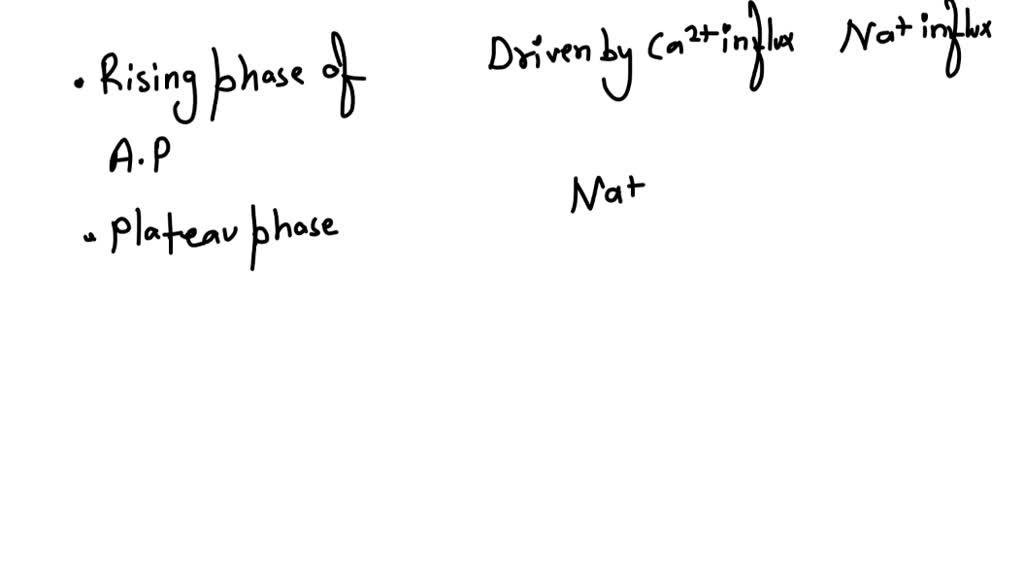 • Rising phase of Driven by Ca²⁺ influx Na⁺ influx
A.P
• Plateau phase Na+